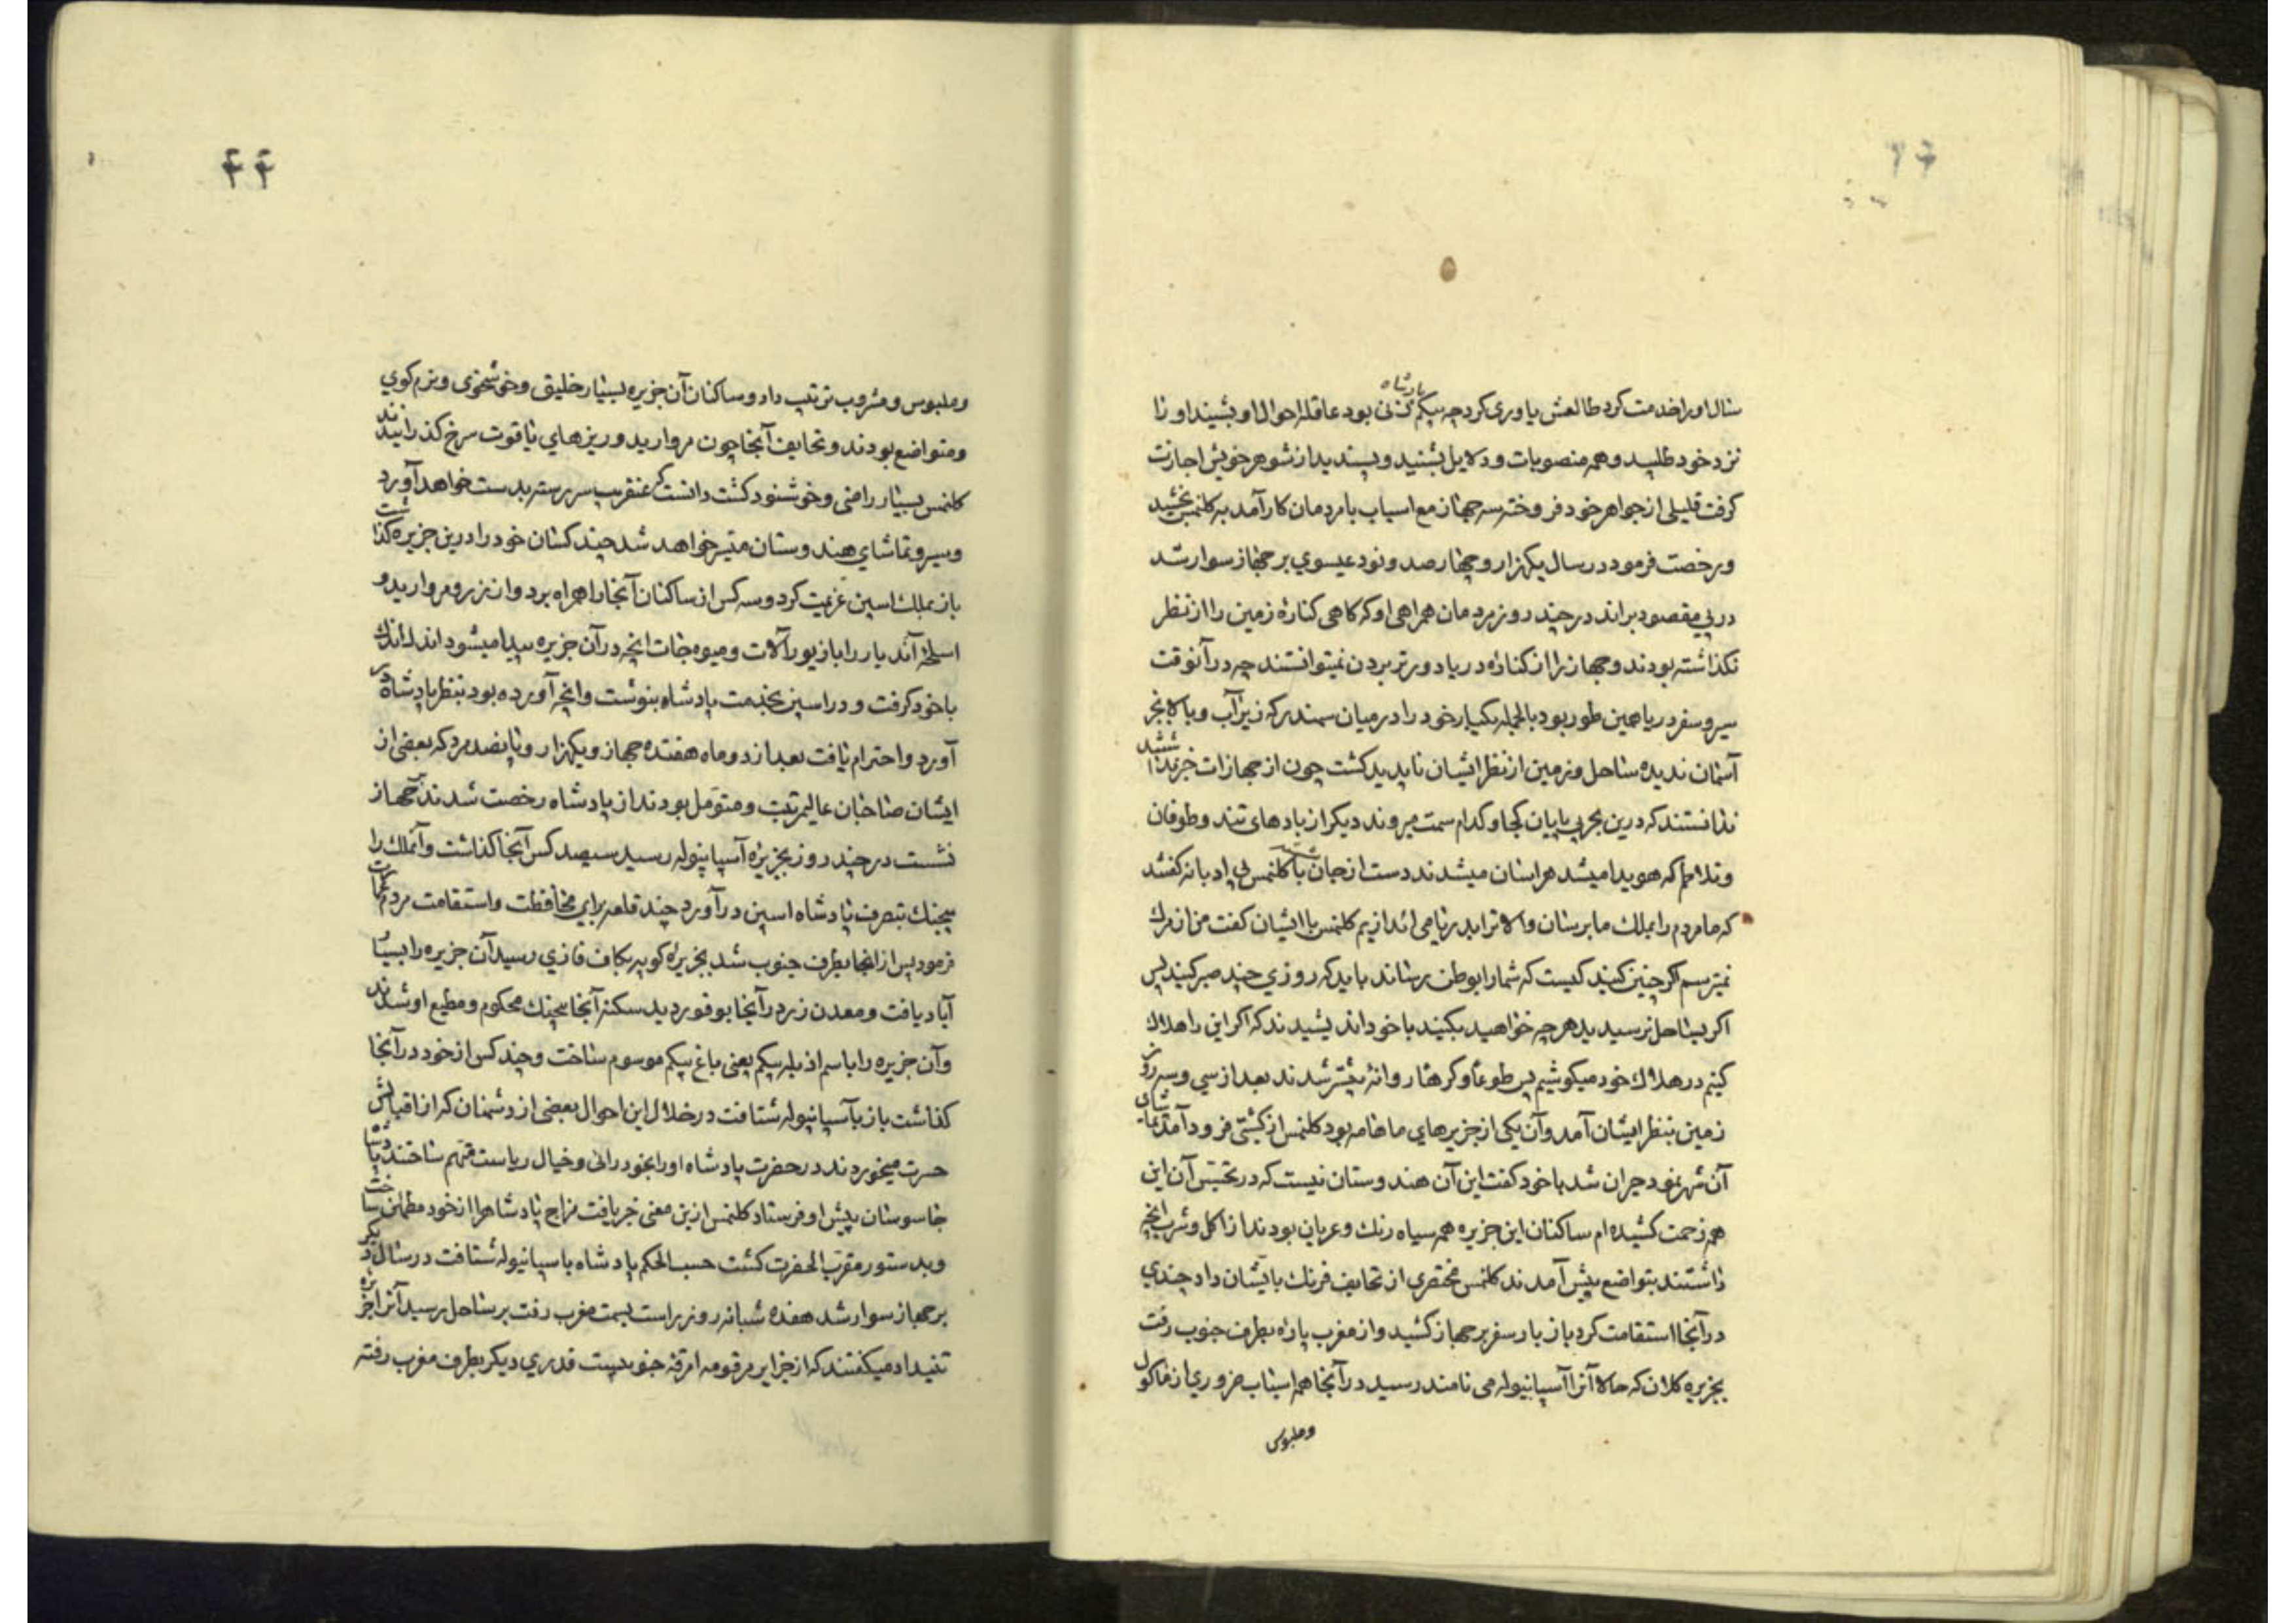 سال او را خدمت کرد طالعش یاوری کرد چه بیکم پادشاه زنی بود عاقله احوال او بشنید او را
نزد خود طلبید و همه منصوبات و دلایل بشنید و پسندید از شوهر خویش اجازت
گرفت قلیلی از جواهر خود فروخته سه جهاز مع اسباب با مردمان کارآمد به کلنمس بخشید
و رخصت فرمود در سال یکهزار و چهارصد و نود عیسوی بر جهاز سوار شد
در پی مقصود براند در چند روز مردمان همراهی او که کاهی کناره زمین را از نظر
نکذاشته بودند و جهاز را از کناره دریا دورتر بردن نمیتوانستند چه در آنوقت
سیر و سفر دریا همین طور بود بالجمله یکبار خود را در میان سمندر که زیر آب و بالا بجز
آسمان ندیده ساحل و زمین از نظر ایشان ناپدید کشت چون از جهازات
ندانستند که درین بحر بی پایان کجا و کدام سمت میروند دیکر از بادهای تند و طوفان
و تلاطم که هویدا میشد هراسان میشدند دست از جان با کلنمس بی ادبانه کفتند
که ما مردم را بملک ما برسان والا ترا بدریا می اندازیم کلنمس با ایشان کفت من از مرک
نمیترسم اکر چنین کنید کیست که شما را بوطن رساند باید که روزی چند صبر کنید پس
اکر بساحل نرسیدید هر چه خواهید بکنید با خود اندیشیدند که اکر این را هلاک
کنیم در هلاک خود میکوشیم پس طوعا و کرها روانهٔ پیشتر شدند بعد از سی و سه روز
زمین بنظر ایشان آمد و آن یکی از جزیرهای ماهامه بود کلنمس از کشتی فرود آمد تماشای
آن شهر نمود حیران شد با خود کفت این آن هندوستان نیست که در تجسس آن این
همه زحمت کشیده ام ساکنان این جزیره همه سیاه رنک و عریان بودند از اکل و شرب انچه
داشتند بتواضع پیش آمدند کلنمس مختصری از تحایف فرنک بایشان داد چندی
در آنجا استقامت کرد باز بار سفر بر جهاز کشید و از مغرب پاره بطرف جنوب رفت
بجزیره کلان که حالا آنرا آسپانیوله می نامند رسید در آنجا همه اسباب ضروری از ماکول
و ملبوس
۴۴
و ملبوس و مشروب ترتیب داد و ساکنان آن جزیره بسیار خلیق و خوشخوی و نرم کوی
و متواضع بودند و تحایف آنجا چون مروارید و ریزهای یاقوت سرخ کذرانیدند
کلنمس بسیار راضی و خوشنود کشت دانست که عنقریب سررسته بدست خواهد آورد
و سیر و تماشای هندوستان میسر خواهد شد چند کسان خود را درین جزیره کذاشت
باز بملک اسپین عزیمت کرد و سه کس از ساکنان آنجا را همراه برد و از زر و مروارید و
اسلحهٔ آن دیار را با زیور آلات و میوه جات انچه در آن جزیره پیدا میشود اندک اندک
با خود کرفت و در اسپین بخدمت پادشاه پیوست و انچه آورده بود بنظر پادشاه در
آورد و احترام یافت بعد از دو ماه هفتده جهاز و یکهزار و پانصد مرد که بعضی از
ایشان صاحبان عالیمرتبت و متومل بودند از پادشاه رخصت شدند بر جهاز
نشست در چند روز بجزیرهٔ آسپانیوله رسید سیصد کس آنجا کذاشت و آنملک را
بجنک بتصرف پادشاه اسپین در آورد چند قلعه برای محافظت و استقامت مردم عمارت
فرمود پس از انجا بطرف جنوب شد بجزیرهٔ کوبه بکاف فازی رسید آن جزیره را بسیار
آباد یافت و معدن زر در آنجا بوفور دید سکنهٔ آنجا بیجنک محکوم و مطیع او شدند
و آن جزیره را باسم ازبله بیکم یعنی باغ بیکم موسوم ساخت و چند کس از خود در آنجا
کذاشت باز بآسپانیوله شتافت در خلال این احوال بعضی از دشمنان که از اقبالش
حسرت میخوردند در حضرت پادشاه او را بخودرائی و خیال ریاست متهم ساختند پادشاه
جاسوسان پیش او فرستاد کلنمس ازین معنی خبر یافت مزاج پادشاه را از خود مطمئن ساخت
و بدستور مقرب الحضرت کشت حسب الحکم پادشاه باسپانیوله شتافت در سال دیکر
بر جهاز سوار شد هفده شبانه روز راست بسمت مغرب رفت بر ساحل رسید آنرا جزیره
تنیداد میکفتند که از جزایر مرقومه امرقهٔ جنوبیست قدری دیکر بطرف مغرب رفته